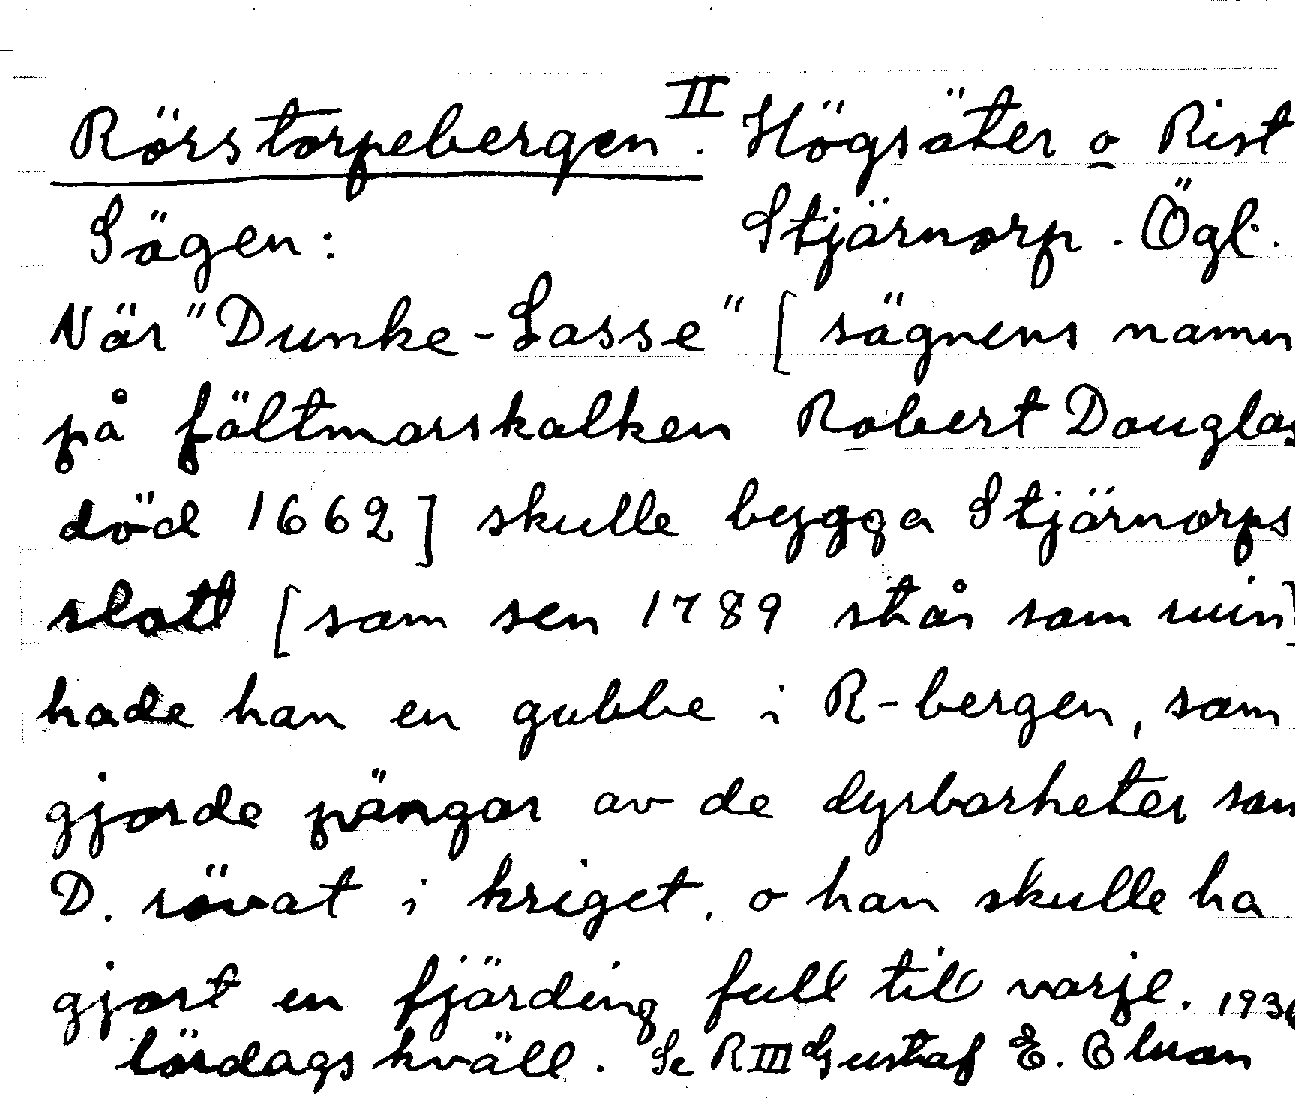 Rörstorpebergen II. Högsäter o Rist
Sägen: Stjärnorp. Ögl.
När "Dunke-Lasse" [sägnens namn
på fältmarskalken Robert Douglas
död 1662] skulle bygga Stjärnorps
slott [som sen 1789 står som ruin]
hade han en gubbe i R-bergen, som
gjorde pängar av de dyrbarheter som
D. rövat i kriget, o han skulle ha
gjort en fjärding full til varje. 1936
lördagskväll. Se R III Gustaf E.